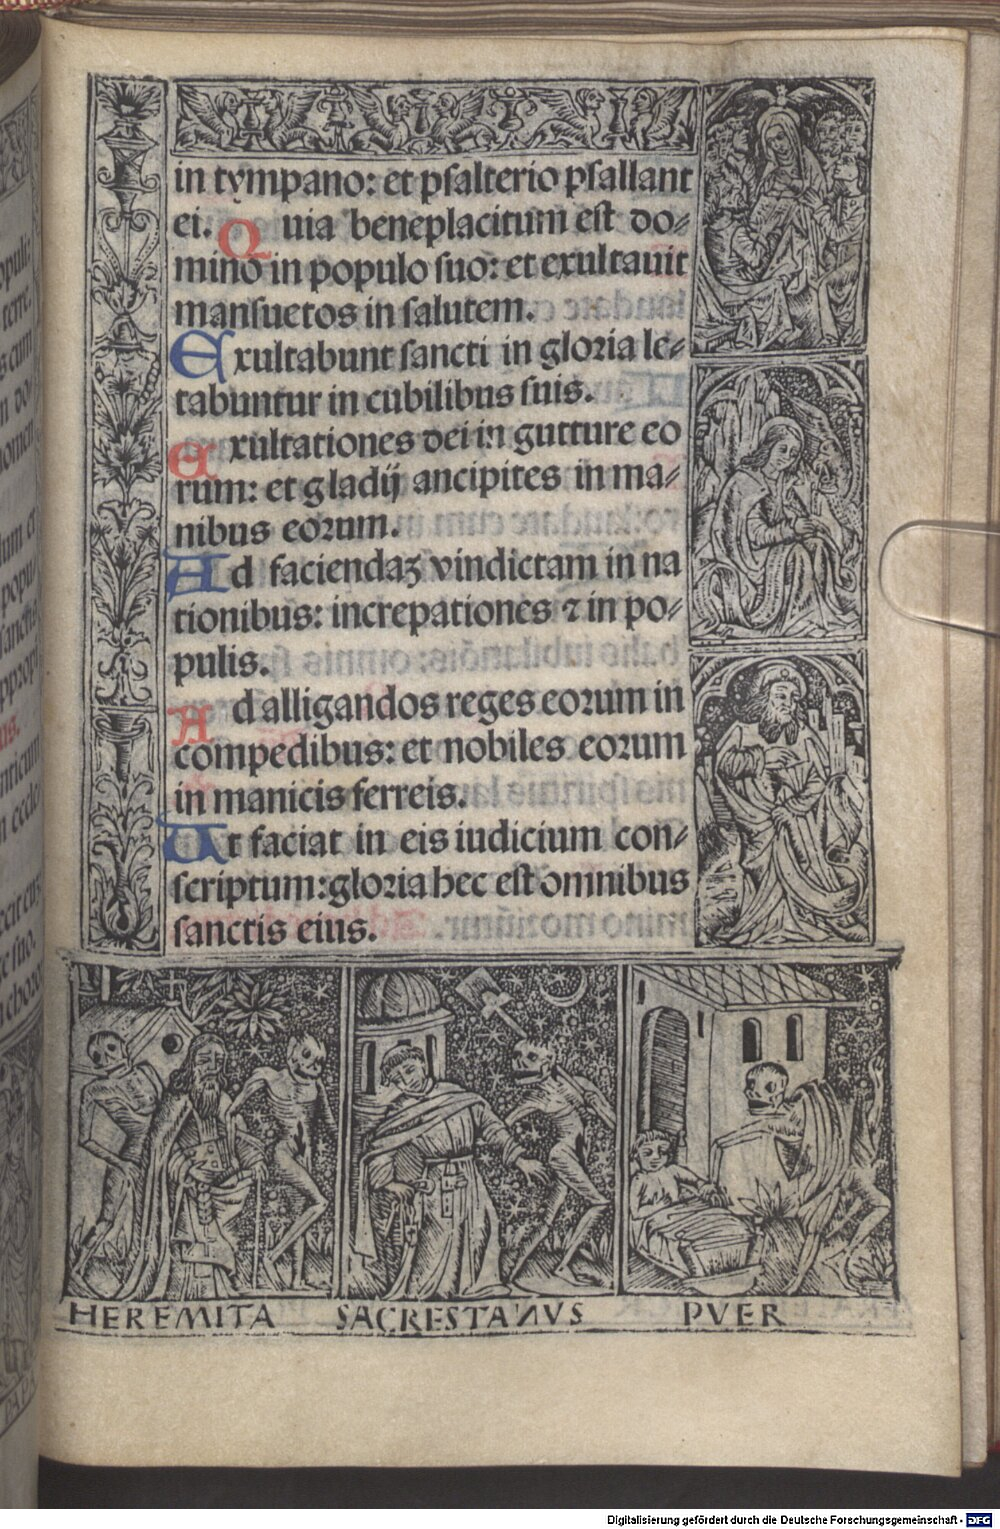 in tympano: et psalterio psallant
ei. Quia beneplacitum est do⸗
mino in populo suo: et exultauit
mansuetos in salutem.
Exultabunt sancti in gloria le⸗
tabuntur in cubilibus suis.
Exultationes dei in gutture eo
rum: et gladij ancipites in ma⸗
nibus eorum.
Ad faciendaꝫ vindictam in na
tionibus: increpationes ⁊ in po⸗
pulis.
Ad alligandos reges eorum in
compedibus: et nobiles eorum
in manicis ferreis.
Ut faciat in eis iudicium con⸗
scriptum: gloria hec est omnibus
sanctis eius.
HEREMITA SACRESTANVS PVER
Digitalisierung gefördert durch die Deutsche Forschungsgemeinschaft - DFG